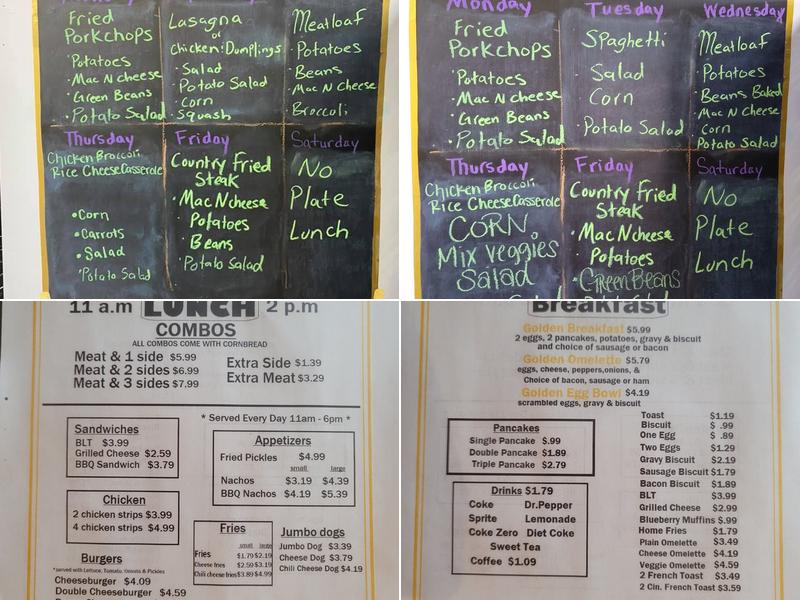 Fried
Porkchops
Potatoes
Mac N cheese
Green Beans
Potato Salad
Lasagna
or
Chicken & Dumplings
Salad
Potato Salad
Corn
Squash
Meatloaf
Potatoes
Beans
Mac N Cheese
Broccoli
Thursday
Chicken Broccoli
Rice Cheese Casserole
Corn
Carrots
Salad
Potato Salad
Friday
Country Fried
Steak
Mac N cheese
Potatoes
Beans
Potato Salad
Saturday
No
Plate
Lunch
Monday
Fried
Porkchops
Potatoes
Mac N cheese
Green Beans
Potato Salad
Tuesday
Spaghetti
Salad
Corn
Potato Salad
Wednesday
Meatloaf
Potatoes
Beans Baked
Mac N Cheese
Corn
Potato Salad
Thursday
Chicken Broccoli
Rice Cheese Casserole
CORN,
Mix Veggies
Salad
Friday
Country Fried
Steak
Mac N cheese
Potatoes
Green Beans
Saturday
No
Plate
Lunch
11 a.m LUNCH 2 p.m
COMBOS
ALL COMBOS COME WITH CORNBREAD
Meat & 1 side $5.99
Meat & 2 sides $6.99
Meat & 3 sides $7.99
Extra Side $1.39
Extra Meat $3.29
* Served Every Day 11am - 6pm *
Sandwiches
BLT $3.99
Grilled Cheese $2.59
BBQ Sandwich $3.79
Appetizers
Fried Pickles $4.99
small large
Nachos $3.19 $4.39
BBQ Nachos $4.19 $5.39
Chicken
2 chicken strips $3.99
4 chicken strips $4.99
Fries
small large
Fries $1.79 $2.19
Cheese fries $2.59 $3.19
Chili cheese fries $3.89 $4.99
Jumbo dogs
Jumbo Dog $3.39
Cheese Dog $3.79
Chili Cheese Dog $4.19
Burgers
*served with Lettuce, Tomato, Onions & Pickles
Cheeseburger $4.09
Double Cheeseburger $4.59
Breakfast
Golden Breakfast $5.99
2 eggs, 2 pancakes, potatoes, gravy & biscuit
and choice of sausage or bacon
Golden Omelette $5.79
eggs, cheese, peppers,onions, &
Choice of bacon, sausage or ham
Golden Egg Bowl $4.19
scrambled eggs, gravy & biscuit
Pancakes
Single Pancake $.99
Double Pancake $1.89
Triple Pancake $2.79
Drinks $1.79
Coke Dr.Pepper
Sprite Lemonade
Coke Zero Diet Coke
Sweet Tea
Coffee $1.09
Toast $1.19
Biscuit $ .99
One Egg $ .89
Two Eggs $1.29
Gravy Biscuit $2.19
Sausage Biscuit $1.79
Bacon Biscuit $1.89
BLT $3.99
Grilled Cheese $2.99
Blueberry Muffins $.99
Home Fries $1.79
Plain Omelette $3.49
Cheese Omelette $4.19
Veggie Omelette $4.59
2 French Toast $3.49
2 Cin. French Toast $3.59